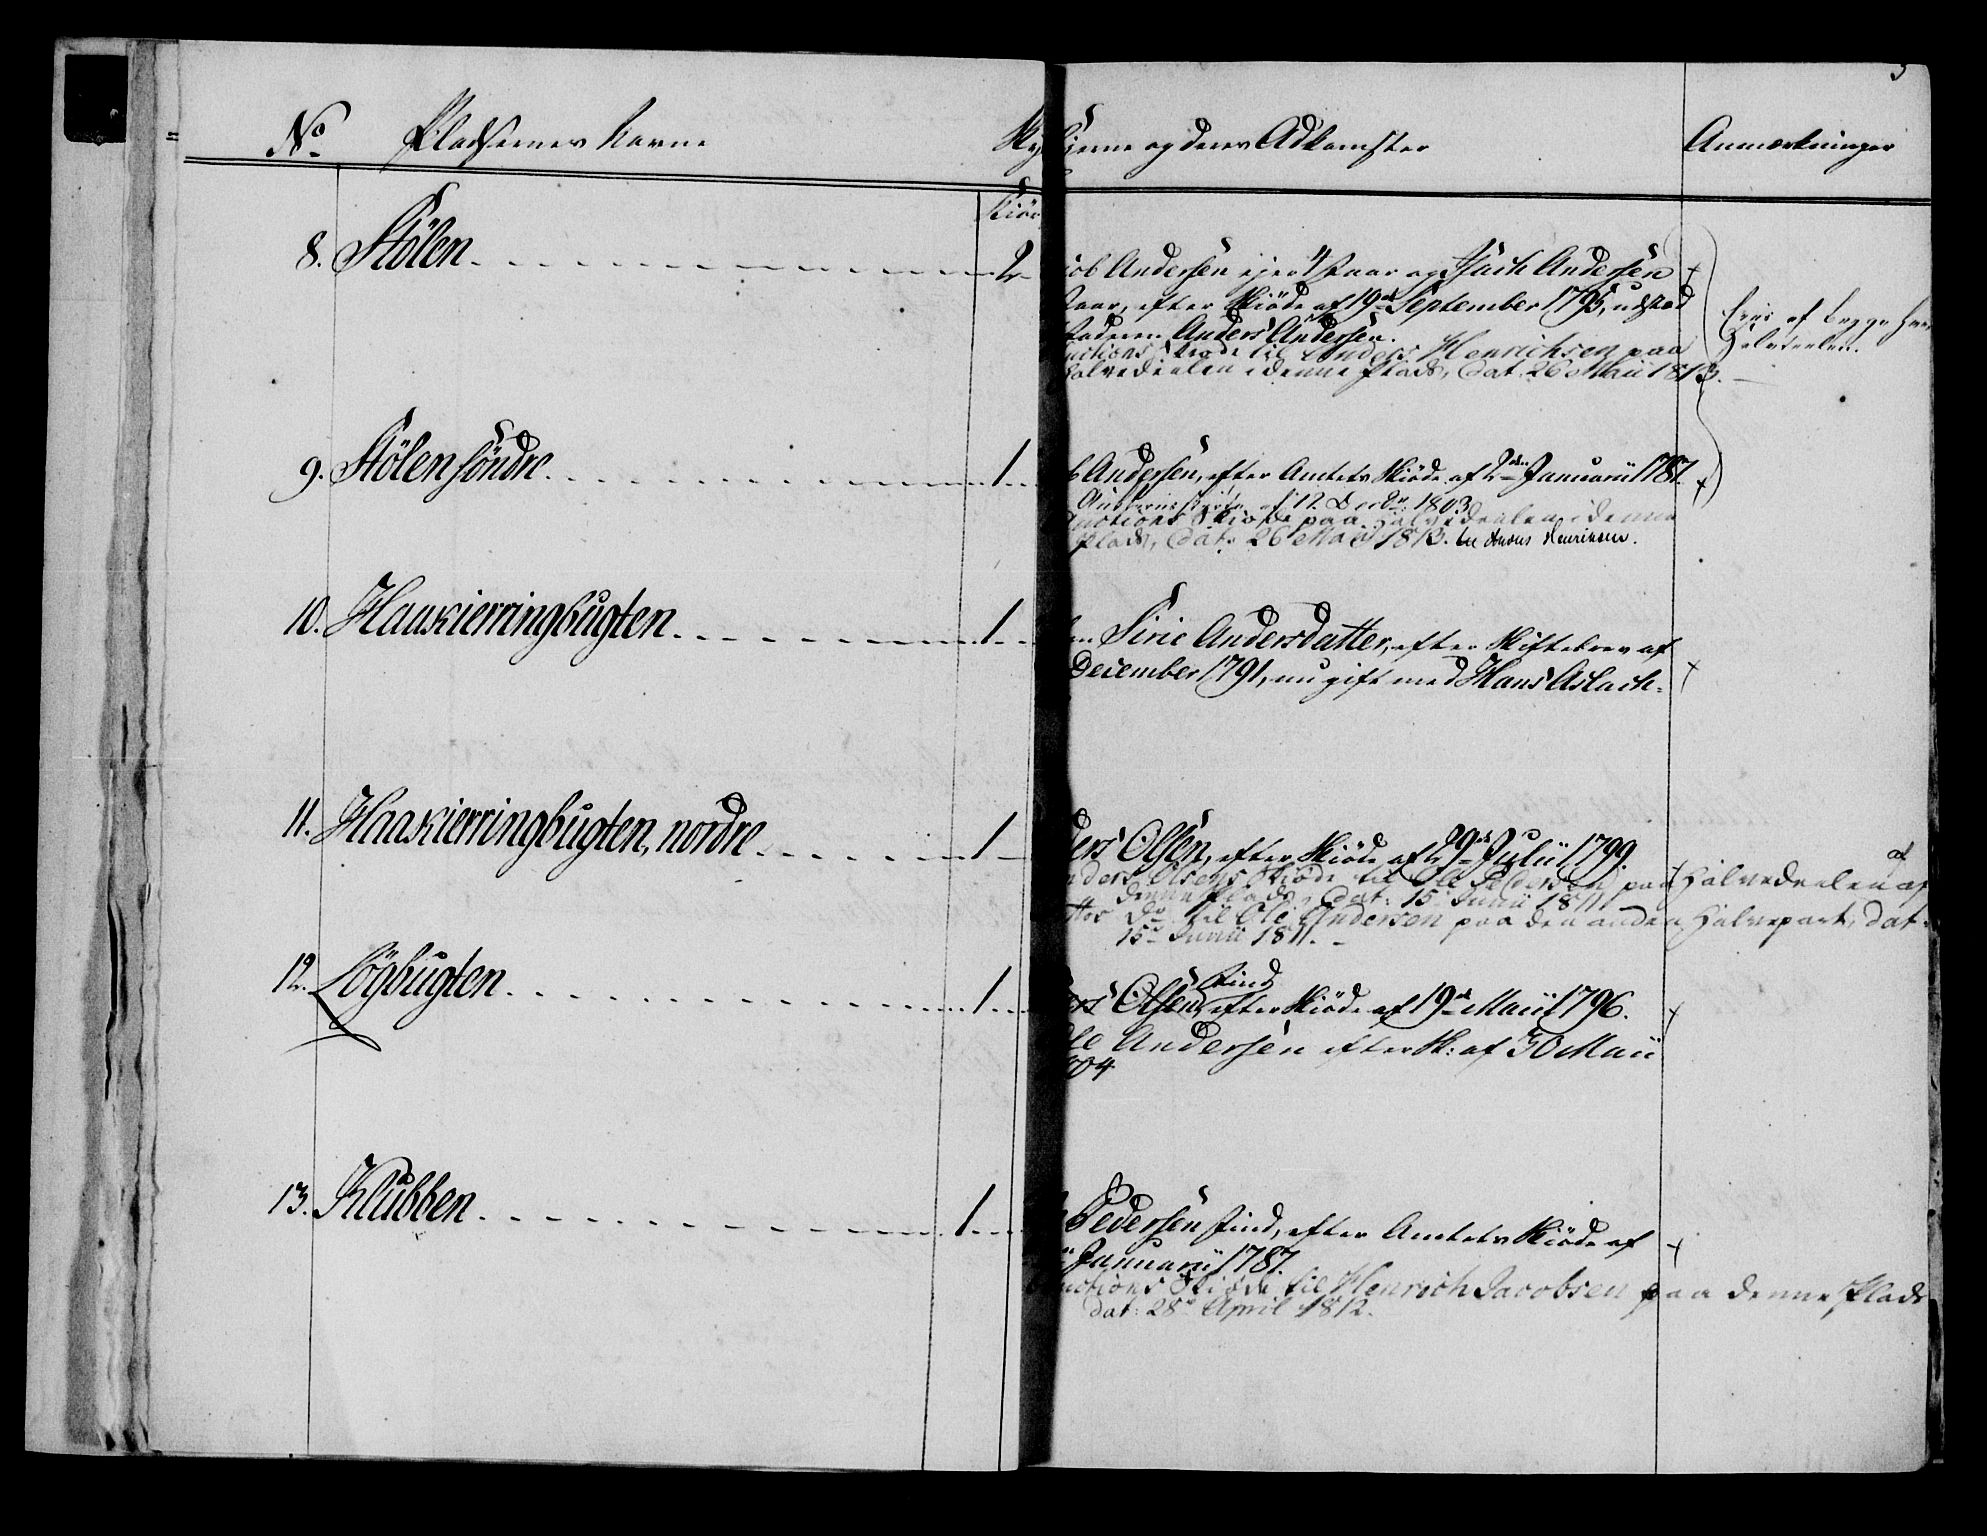 3
No Pladsernes Navne
Eierne og deres Adkomster
Anmærkninger
8. Stölen 2
Jacob Andersen ejer 1 Vaar og Isach Andersen
Vaar, efter Skiöde af 19de September 1795, udsted
Faderen Anders Andersen.
Auctions Skiøde til Anders Henrichsen paa
Halvedeelen i denne Plads, Dat. 26 Maii 1813.
Eies af begge
Halvdeelen.
9. Stölen söndre 1
Andersen, efter Amtets Skiöde af 2den Januarii 1787.
af 12 Decbr: 1803
Auctions Skiøde paa Halvedeelen i denne
Plads, Dat. 26 Maii 1813. til Anders Henriksen.
10. Haaskierringbugten 1
Sirie Andersdatter, efter Skiftebrev af
December 1791, nu gift med Hans Aslach-
11. Haaskierringbugten, nordre 1
Anders Olsen, efter Skiöde af 29de Julii 1799.
Anders Olsens Skiøde til Ole Pedersen paa Halvedeelen af
denne Plads, Dat: 15 Junii 1811.
Do til Ole Andersen paa den anden Halvepart, Dat.
15de Junii 1811.
12. Löybugten 1
Find
Anders Olsen, efter Skiöde af 19de Maii 1796.
Ole Andersen efter Sk: af 30 Maii
1804
13. Klubben 1
Pedersen Find, efter Amtets Skiöde af
Januarii 1787.
Auctions Skiøde til Henrich Jacobsen paa denne Plads
dat: 28de April 1812.